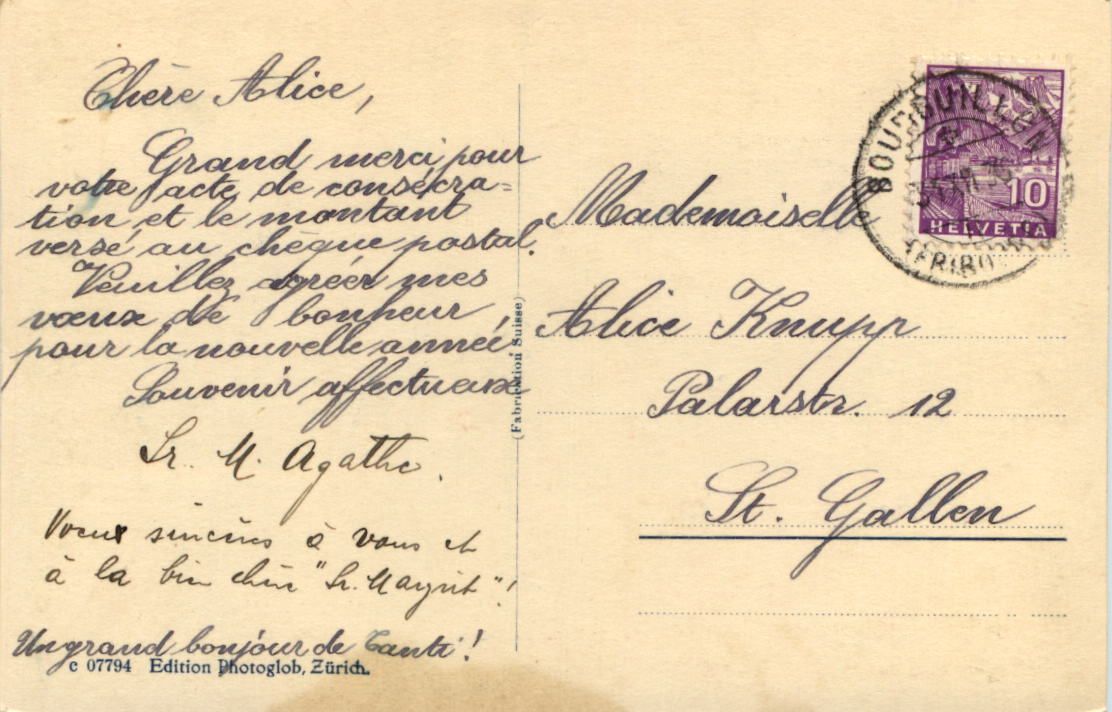 Chère Alice,
Grand merci pour
votre acte de consécra=
tion et le montant
versé au chèque postal.
Veuillez agréer mes
vœux de bonheur
pour la nouvelle année.
Souvenir affectueux
Sr. M. Agathe.
Vœux sincères à vous et
à la bien chère "Sr. Margrit"!
Un grand bonjour de Tanti!
c 07794 Edition Photoglob, Zürich.
(Fabrication Suisse)
10
HELVETIA
Mademoiselle
Alice Knupp
Palarstr. 12
St. Gallen